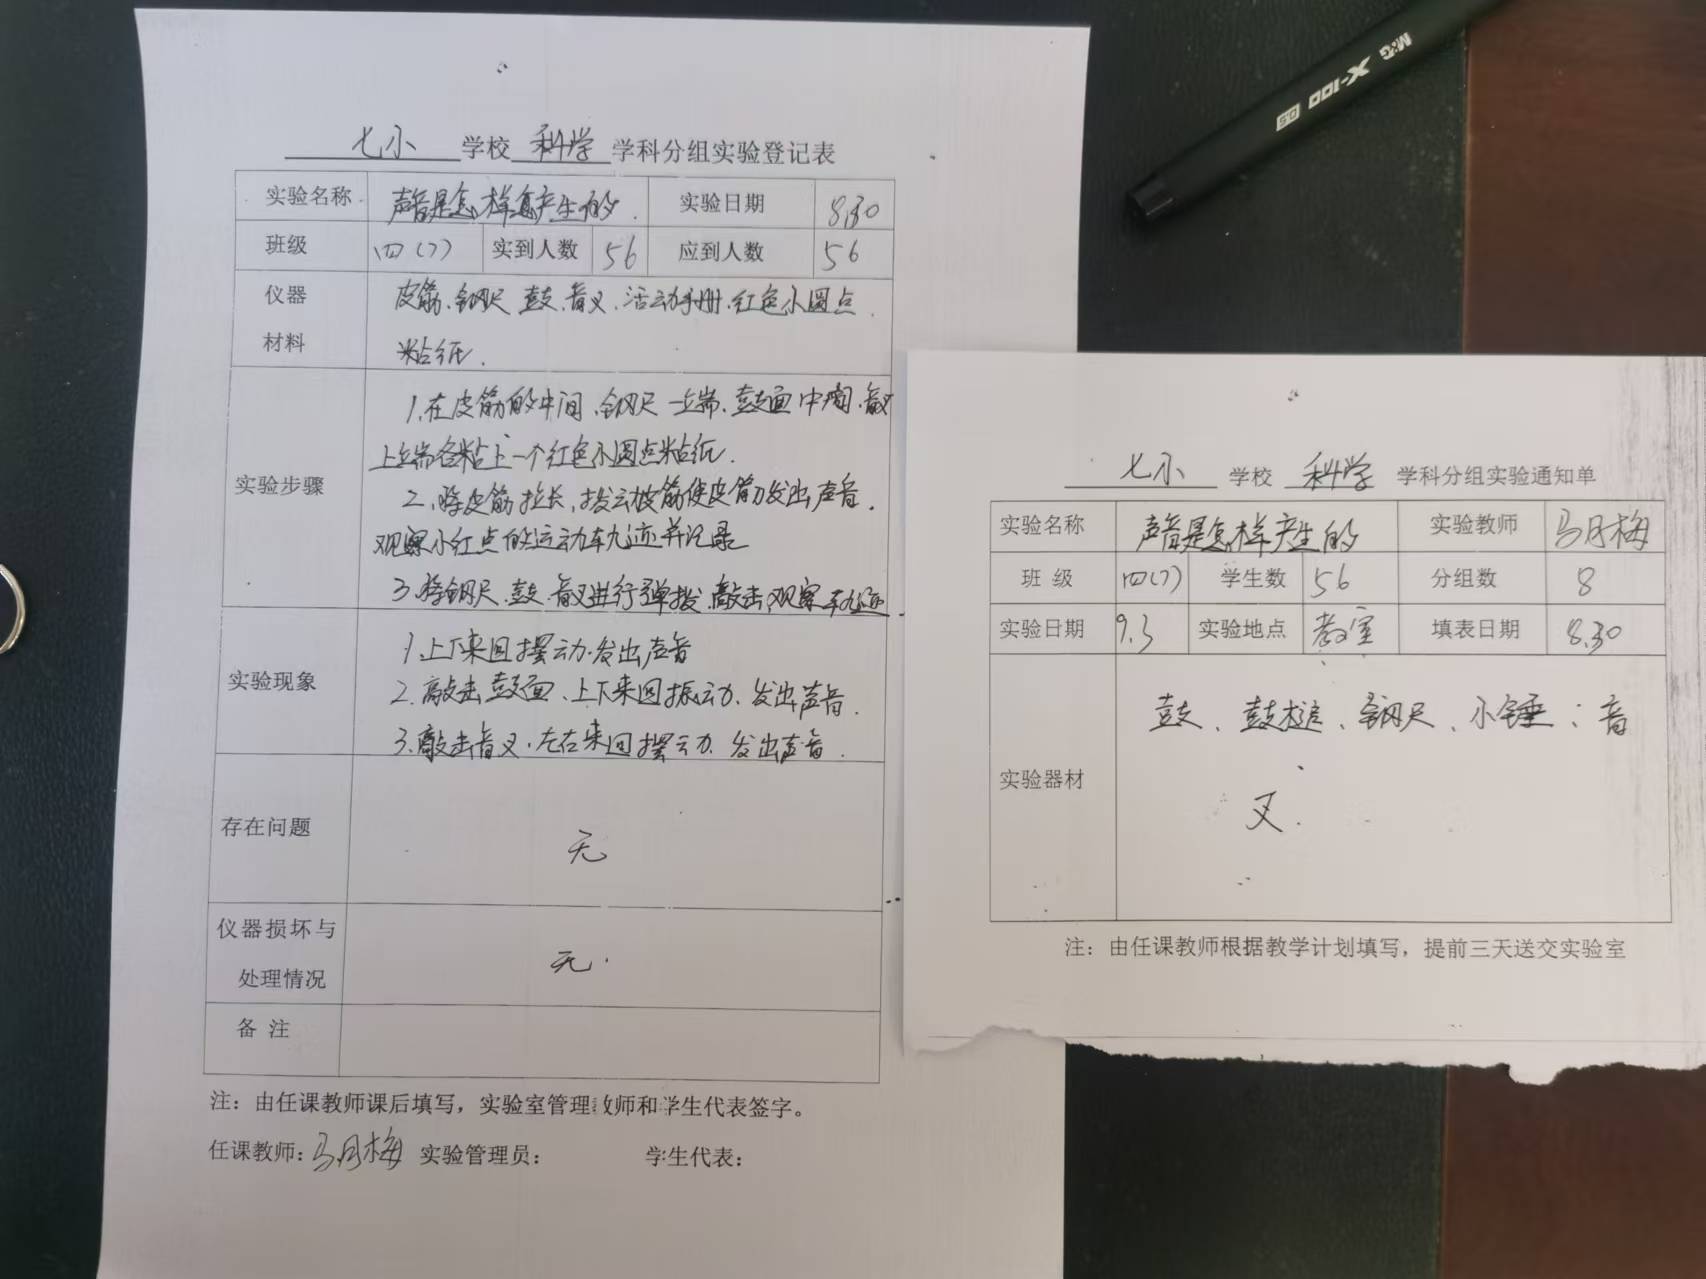 七小 学校 科学 学科分组实验登记表
实验名称 声音是怎样产生的. 实验日期 8.30
班级 四(7) 实到人数 56 应到人数 56
仪器 皮筋、钢尺 鼓、音叉、活动手册、红色小圆点
材料 粘纸.
1.在皮筋的中间、钢尺一端、鼓面中间、音叉
上端各粘上一个红色小圆点粘纸.
实验步骤
2.将皮筋拉长,拨动皮筋使皮筋发出声音.
观察小红点的运动轨迹并记录
3.将钢尺、鼓、音叉进行弹拨、敲击,观察轨迹
1.上下来回摆动.发出声音
实验现象 2.敲击鼓面、上下来回振动、发出声音.
3.敲击音叉.左右来回摆动.发出声音.
存在问题 无
仪器损坏与
处理情况 无.
备 注
注：由任课教师课后填写，实验室管理教师和学生代表签字。
任课教师：马月梅 实验管理员： 学生代表：
七小 学校 科学 学科分组实验通知单
实验名称 声音是怎样产生的 实验教师 马月梅
班 级 四(7) 学生数 56 分组数 8
实验日期 9.3 实验地点 教室 填表日期 8.30
鼓、鼓槌、钢尺、小锤；音
实验器材
叉.
注：由任课教师根据教学计划填写，提前三天送交实验室
M&G X-100 0.5